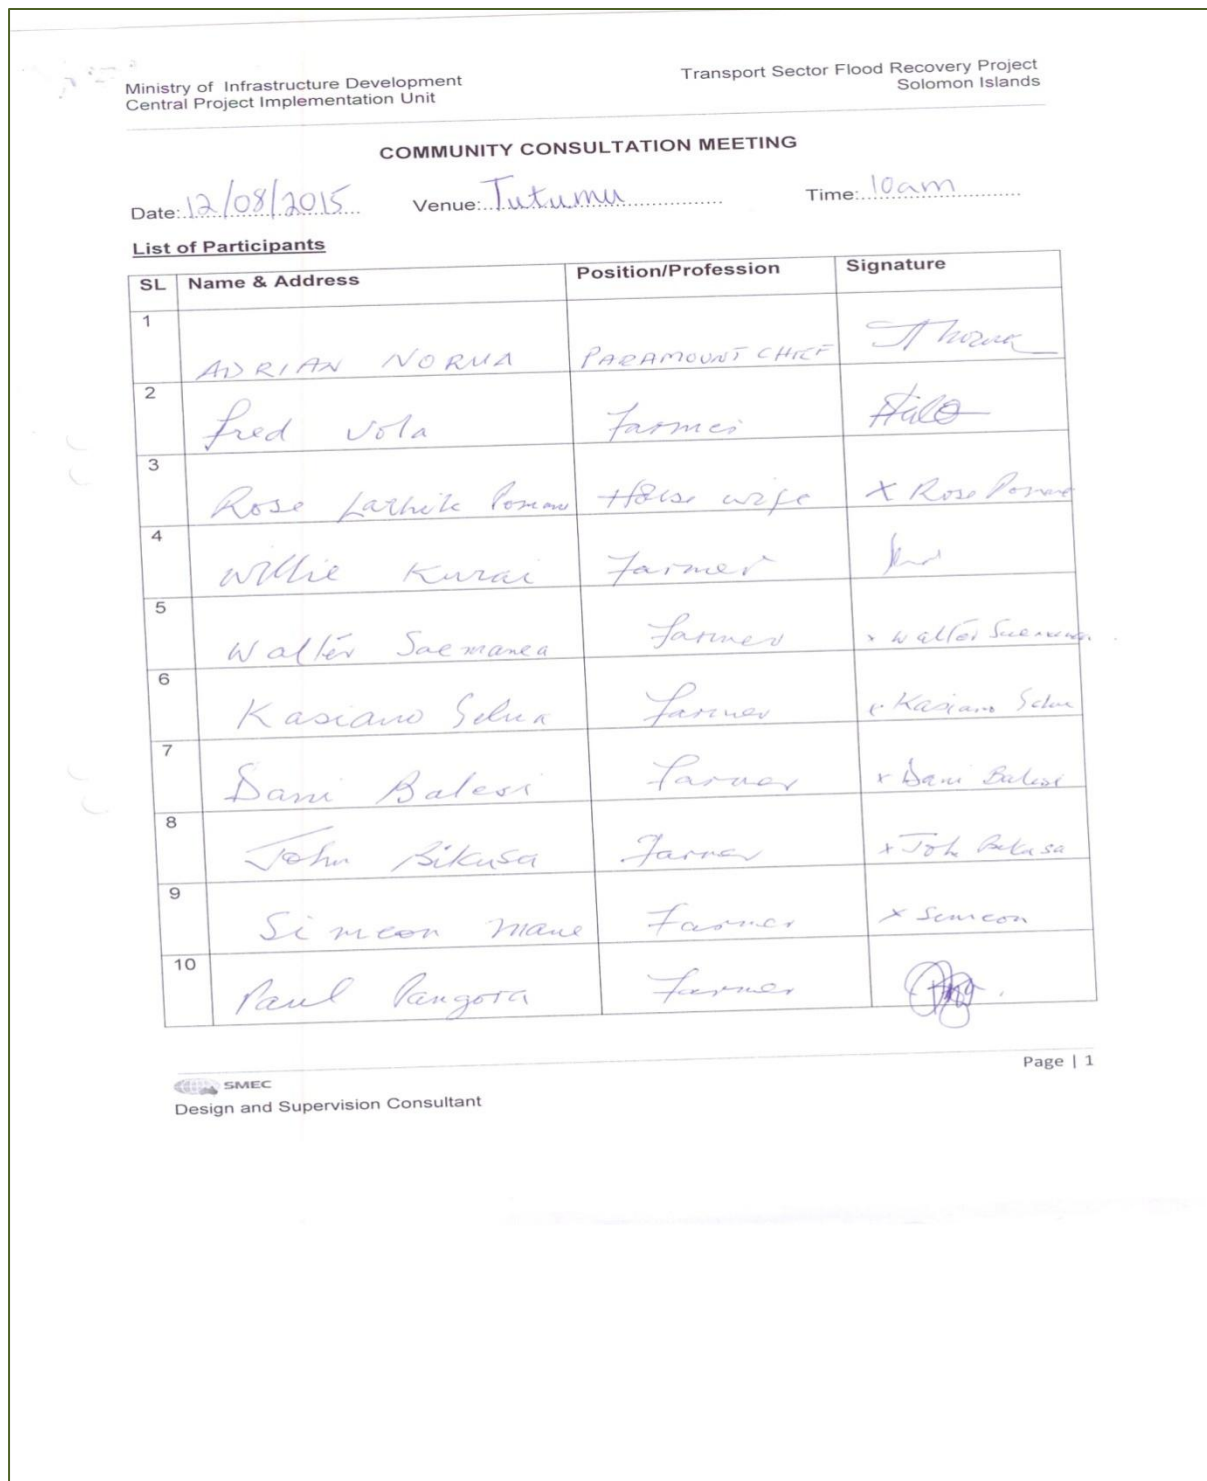 Ministry of Infrastructure Development
Central Project Implementation Unit
Transport Sector Flood Recovery Project
Solomon Islands
COMMUNITY CONSULTATION MEETING
Date: 12/08/2015 Venue: Tutumu Time: 10am
List of Participants
SL Name & Address Position/Profession Signature
1 ADRIAN NORUA PARAMOUNT CHIEF
2 fred Vola Farmer
3 Rose House wife X Rose
4 Willie Kurai Farmer
5 Walter Saemanea Farmer x Walter
6 Kasiano Selua Farmer Kasiano
7 Dani Balesi Farmer x Dani Balesi
8 John Bikusa Farmer x Joh Bikusa
9 Simeon Mane Farmer x Simeon
10 Paul Pangora Farmer
Page | 1
SMEC
Design and Supervision Consultant